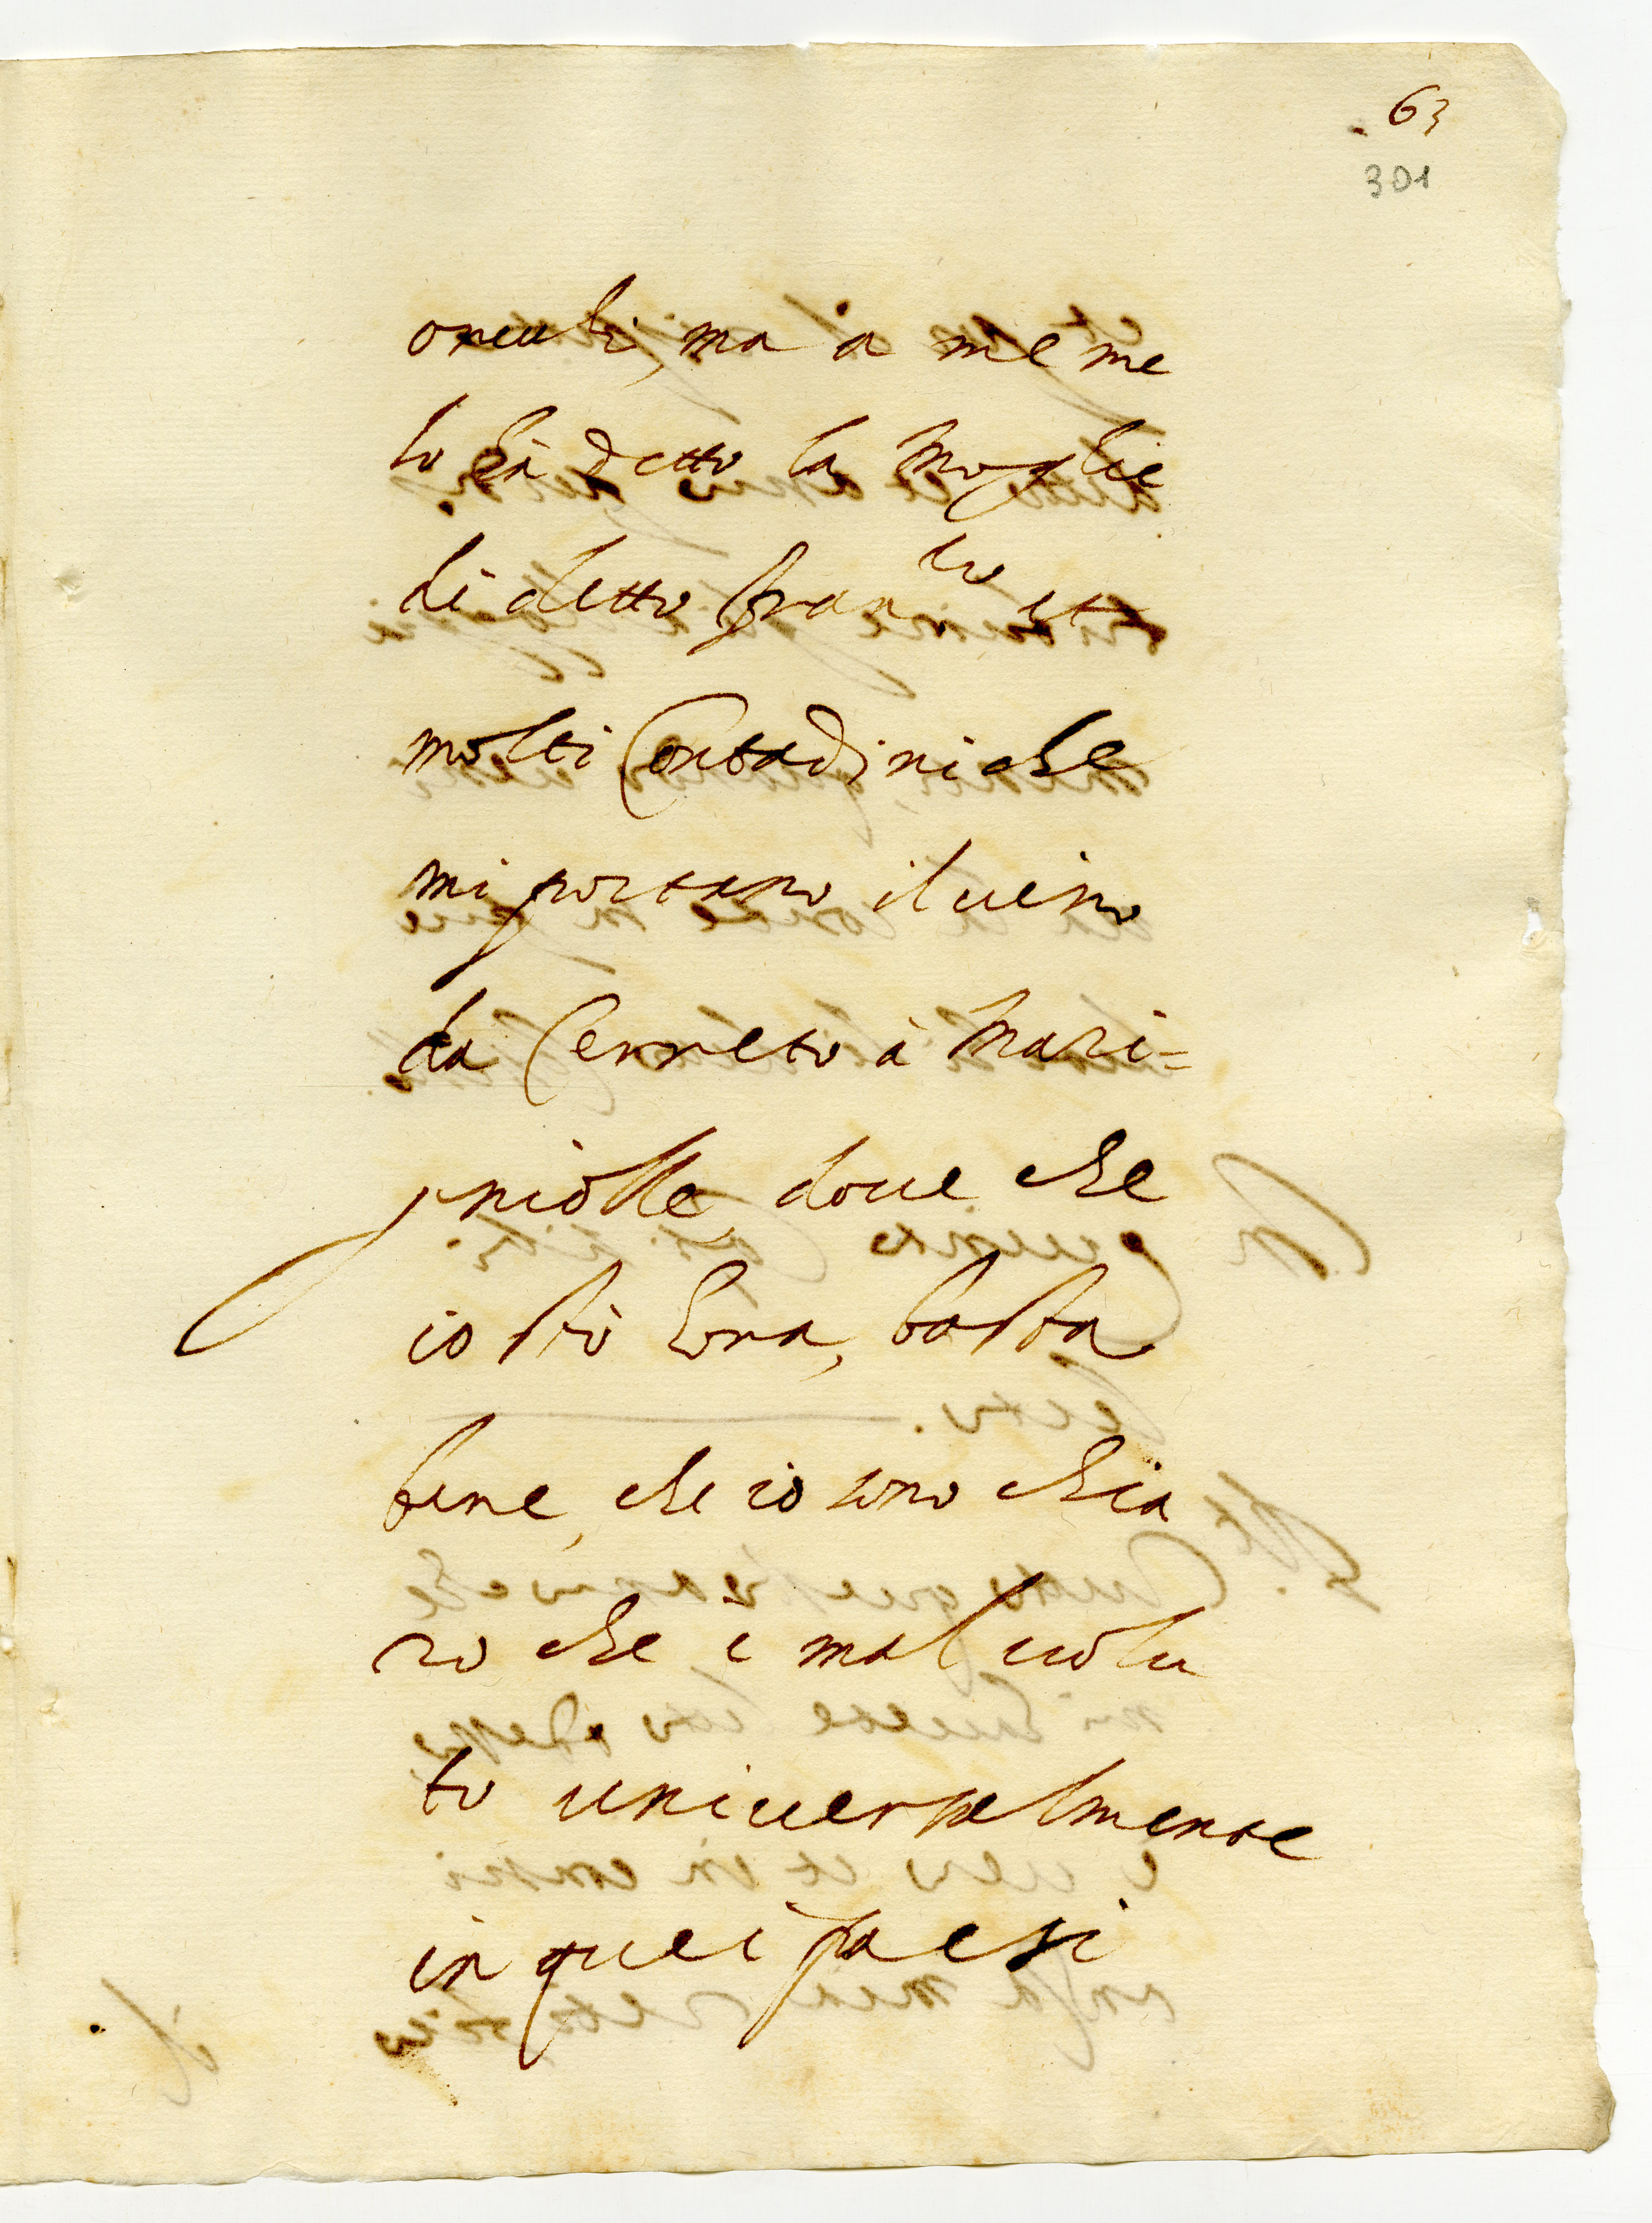 63
301
occulti, ma à me me
lo hà detto la Moglie
di detto Fran.co et
molti Contadini che
mi portano il uino
da Cerreto à Mari=
gniolle, doue che
io stò hora, basta
bene, che io sono chia
ro che è mal uolu
to uniuersalmente
in quei paesi